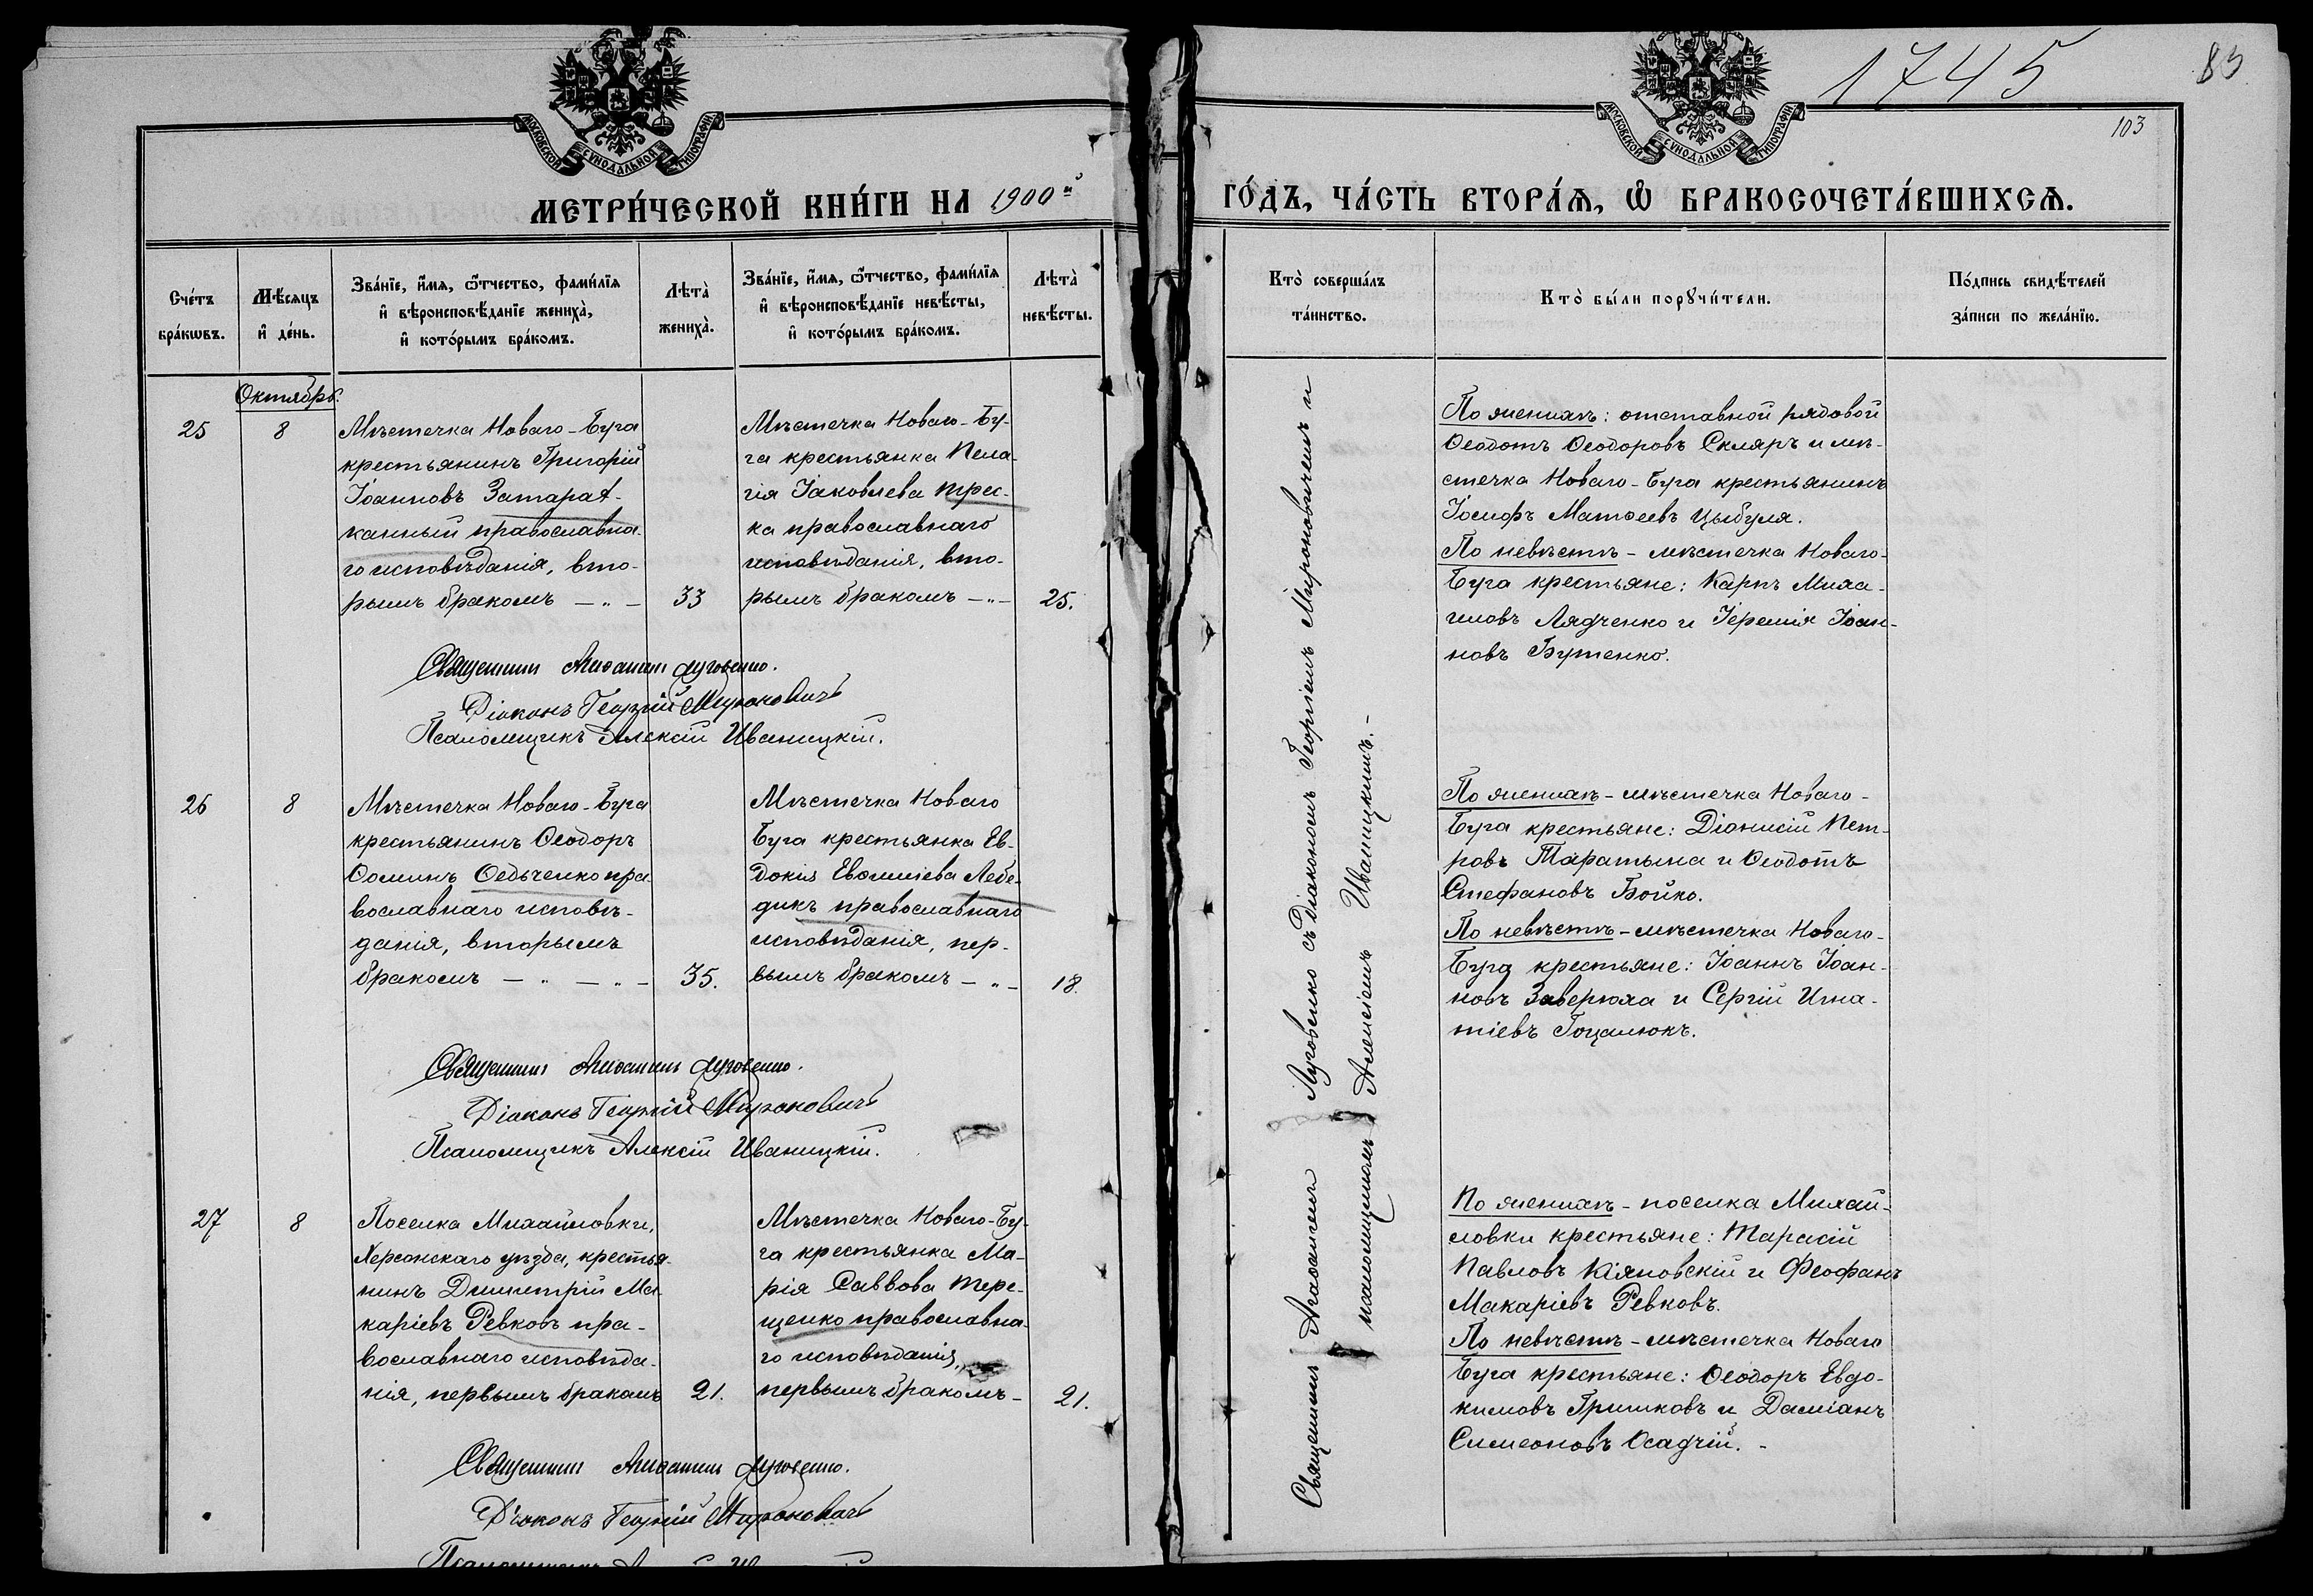 1745
83
103
МОСКОВСКОЙ СѴНОДАЛЬНОЙ ТИПОГРАФІИ
МОСКОВСКОЙ СѴНОДАЛЬНОЙ ТИПОГРАФІИ
МЕТРИ́ЧЕСКОЙ КНИ́ГИ НА 1900й ГО́ДЪ, ЧА́СТЬ ВТОРА́Ѧ, Ѽ БРАКОСОЧЕТА́ВШИХСѦ.
Сче́тъ
бра́кѡвъ.
Мѣ́сѧцъ
и҆ де́нь.
Зва́нїе, и҆́мѧ, ѻ҆́тчество, фами́лїѧ
и҆ вѣроисповѣ́данїе жениха̀,
и҆ кото́рымъ бра́комъ.
Лѣта̀
жениха̀.
Зва́нїе, и҆́мѧ, ѻ҆́тчество, фами́лїѧ
и҆ вѣроисповѣ́данїе невѣ́сты,
и҆ кото́рымъ бра́комъ.
Лѣта̀
невѣ́сты.
Кто̀ соверша́лъ
та́инство.
Кто̀ бы́ли порꙋчи́тели.
По́дпись свидѣ́телей
за́писи по жела́нїю.
Октябрь.
25
8
Мѣстечка Новаго-Буга
крестьянинъ Григорій
Іоанновъ Затарат-
канный православна-
го исповѣданія, вто-
рымъ бракомъ — „ —
33
Мѣстечка Новаго-Бу-
га крестьянка Пела-
гія Іаковлева Трес-
ка православнаго
исповѣданія, вто-
рымъ бракомъ —„—
25.
По женихѣ: отставной рядовой
Ѳеодотъ Ѳеодоровъ Скляръ и мѣ-
стечка Новаго-Буга крестьянинъ
Іосифъ Матѳеевъ Цыбуля.
По невѣстѣ - мѣстечка Новаго-
Буга крестьяне: Карпъ Миха-
иловъ Лядченко и Іеремія Іоан-
новъ Бутенко.
Священникъ Агаѳангелъ Луговенко.
Діаконъ Георгій Мироновичъ
Псаломщикъ Алексій Иваницкій.
26
8
Мѣстечка Новаго-Буга
крестьянинъ Ѳеодоръ
Ѳоминъ Ѳедьченко пра-
вославнаго исповѣ-
данія, вторымъ
бракомъ — „ — „ —
35.
Мѣстечка Новаго
Буга крестьянка Ев-
докія Евѳиміева Лебе-
дикъ православнаго
исповѣданія, пер-
вымъ бракомъ — „ —
18.
По женихѣ - мѣстечка Новаго-
Буга крестьяне: Діонисій Пет-
ровъ Таратына и Ѳеодотъ
Стефановъ Бойко.
По невѣстѣ - мѣстечка Новаго-
Буга крестьяне: Іоаннъ Іоан-
новъ Заверюха и Сергій Игна-
тіевъ Гоцалюкъ.
Священникъ Агаѳангелъ Луговенко.
Діаконъ Георгій Мироновичъ
Псаломщикъ Алексій Иваницкій.
27
8
Поселка Михайловки,
Херсонскаго уѣзда, крестья-
нинъ Димитрій Ма-
каріевъ Ревковъ пра-
вославнаго исповѣда-
нія, первымъ бракомъ
21.
Мѣстечка Новаго-Бу-
га крестьянка Ма-
рія Саввова Тере-
щенко православна-
го исповѣданія,
первымъ бракомъ -
21.
По женихѣ - поселка Михай-
ловки крестьяне: Тарасій
Павловъ Кіяновскій и Феофанъ
Макаріевъ Ревковъ.
По невѣстѣ - мѣстечка Новаго
Буга крестьяне: Ѳеодоръ Евдо-
кимовъ Гришковъ и Даміанъ
Симеоновъ Осадчій. -
Священникъ Агаѳангелъ Луговенко.
Діаконъ Георгій Мироновичъ
Священникъ Агаѳангелъ Луговенко съ діакономъ Георгіемъ Мироновичемъ и
псаломщикомъ Алексіемъ Иваницкимъ. -